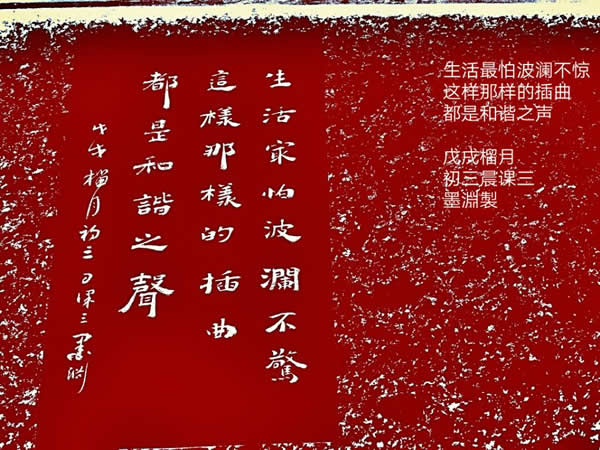 生活冣怕波瀾不驚
這樣那樣的插曲
都是和諧之聲
榴月初三日课三墨渊
生活最怕波澜不惊
这样那样的插曲
都是和谐之声
戊戌榴月
初三晨课三
墨淵製